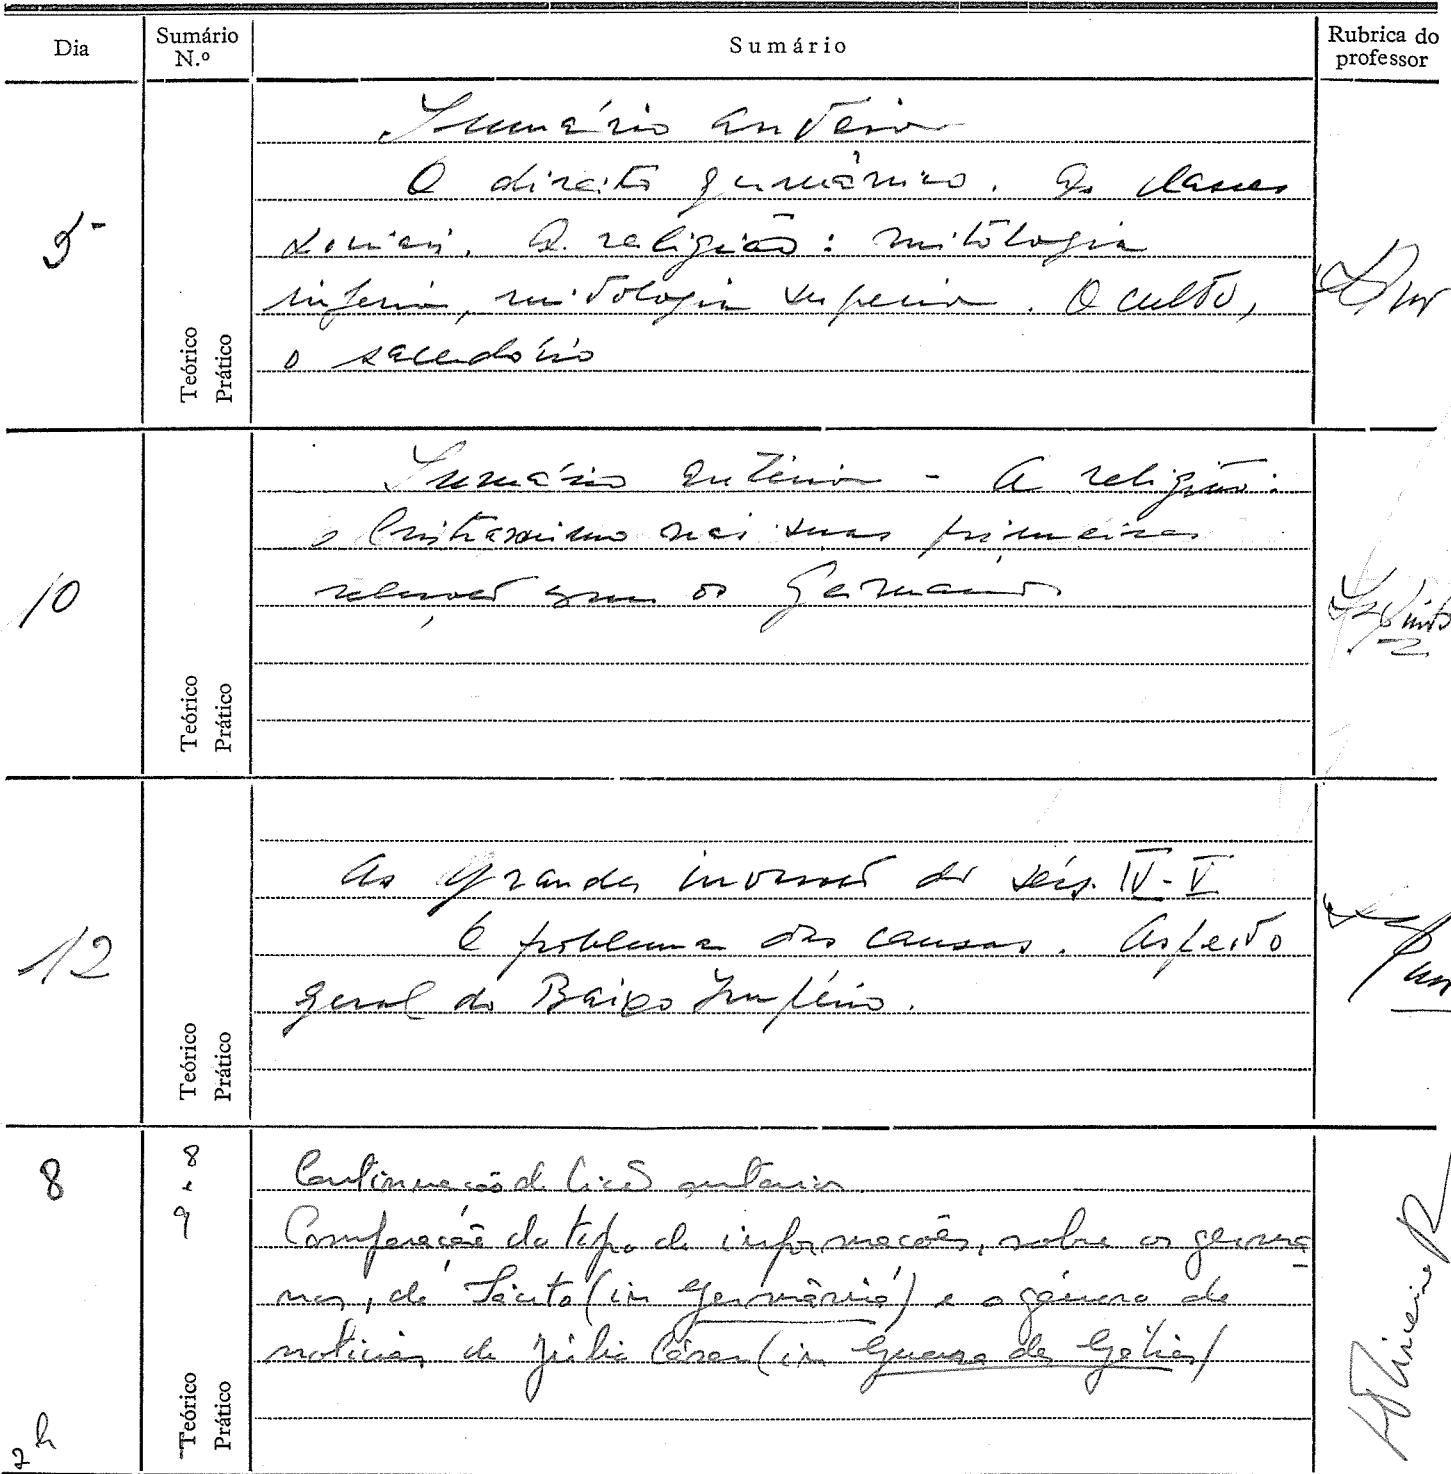 Dia
Sumário N.º
Sumário
Rubrica do professor
5
Sumário anterior
O direito germânico. As classes
sociais. A religião: mitologia
inferior, mitologia superior. O culto,
o sacerdócio
Teórico
Prático
10
Sumário anterior - A religião:
o Cristianismo nas suas primeiras
relações com os Germanos
Teórico
Prático
12
As grandes invasões dos sécs. IV-V
O problema das causas. Aspecto
geral do Baixo Império.
Teórico
Prático
8
Continuação da lição anterior
Comparação do tipo de informações, sobre os germa-
nos, de Tácito (in Germânia) e o género de
notícias de Júlio César (in Guerra das Gálias)
2h
Teórico
Prático